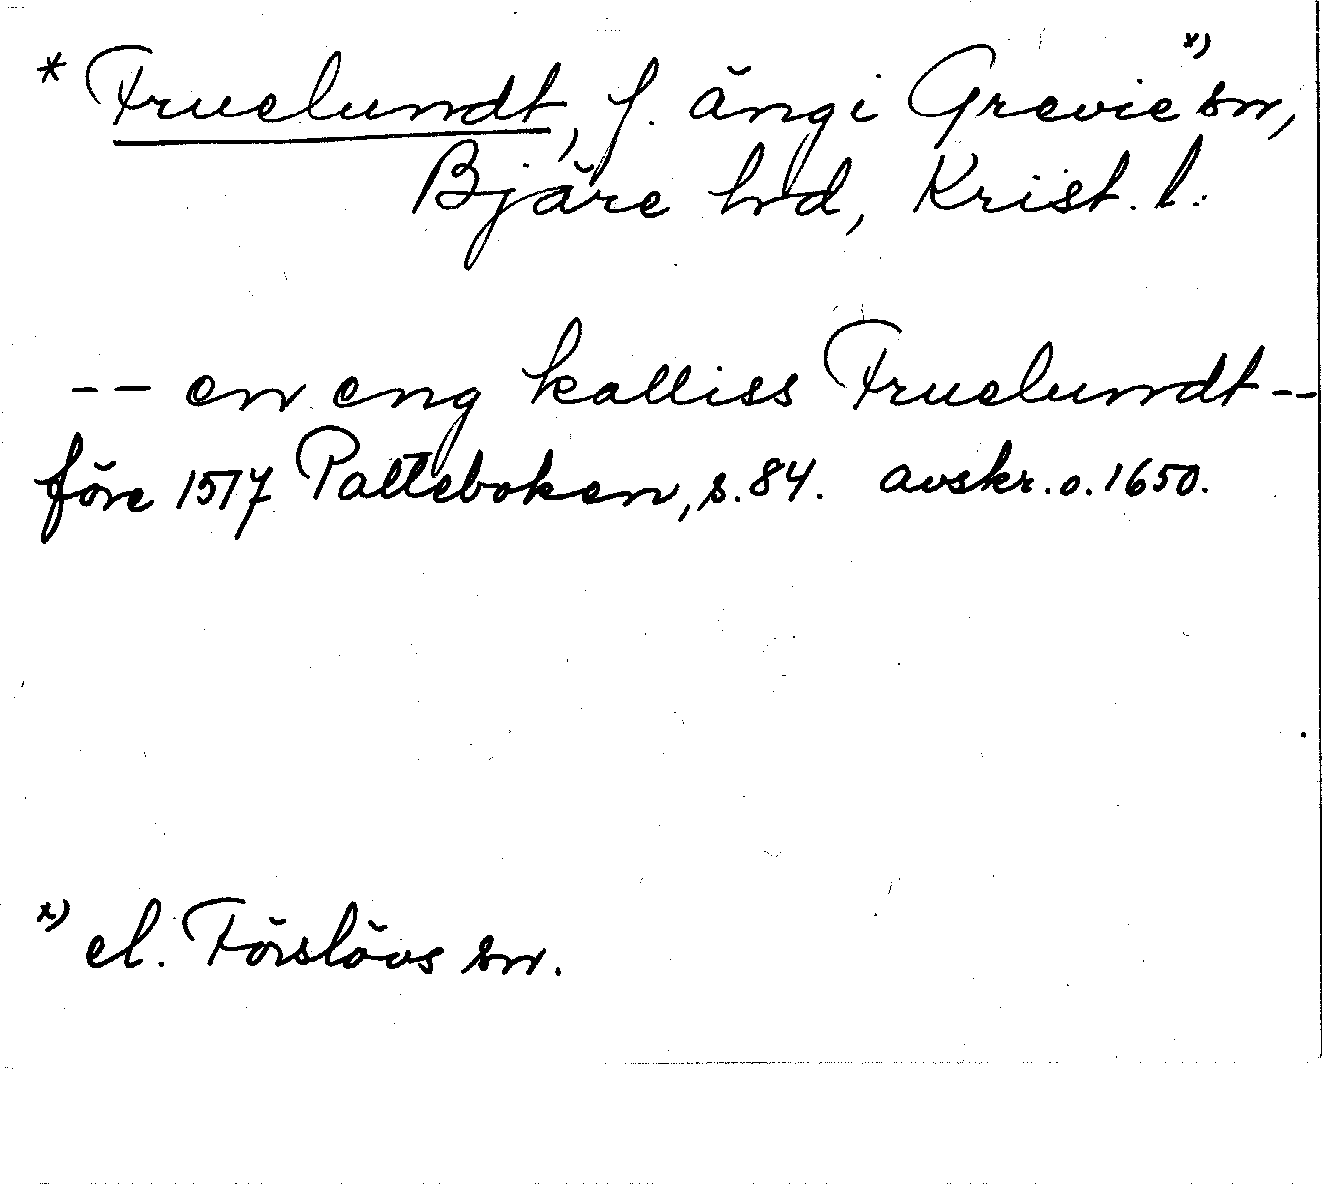 * Fruelundt, f. äng i Grevie x) sn,
Bjäre hrd, Krist. l.
-- en eng kalliss Fruelundt --
före 1517 Palteboken, s. 84. avskr. o. 1650.
x) el. Förslövs sn.